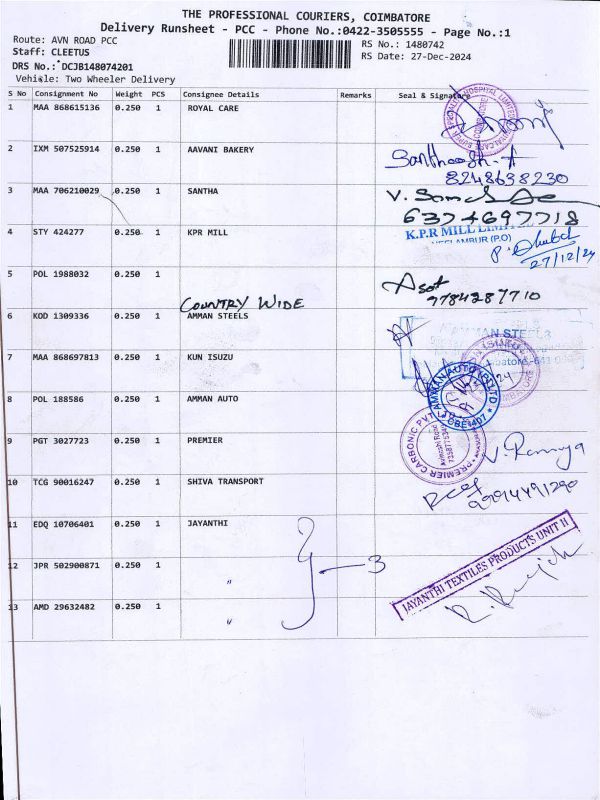 THE PROFESSIONAL COURIERS, COIMBATORE
Delivery Runsheet - PCC - Phone No.:0422-3505555 - Page No.:1
Route: AVN ROAD PCC
RS No.: 1480742
Staff: CLEETUS
RS Date: 27-Dec-2024
DRS No.: DCJB148074201
Vehicle: Two Wheeler Delivery
S No Consignment No Weight PCS Consignee Details Remarks Seal & Signature
1 MAA 868615136 0.250 1 ROYAL CARE
2 IXM 507525914 0.250 1 AAVANI BAKERY
Santhosh.A
8248638230
3 MAA 706210029 0.250 1 SANTHA
6374697718
4 STY 424277 0.250 1 KPR MILL
K.P.R MILL LIMITED
NEELAMBUR (P.O)
27/12/24
5 POL 1988032 0.250 1
COUNTRY WIDE
9784287710
6 KDD 1309336 0.250 1 AMMAN STEELS
AMMAN STEELS
7 MAA 868697813 0.250 1 KUN ISUZU
8 POL 188586 0.250 1 AMMAN AUTO
9 PGT 3027723 0.250 1 PREMIER
PREMIER CARBONIC PVT LTD
V. Ramya
10 TCG 90016247 0.250 1 SHIVA TRANSPORT
11 EDQ 10706401 0.250 1 JAYANTHI
JAYANTHI TEXTILES PRODUCTS UNIT II
12 JPR 502900871 0.250 1 "
3
13 AMD 29632482 0.250 1 "